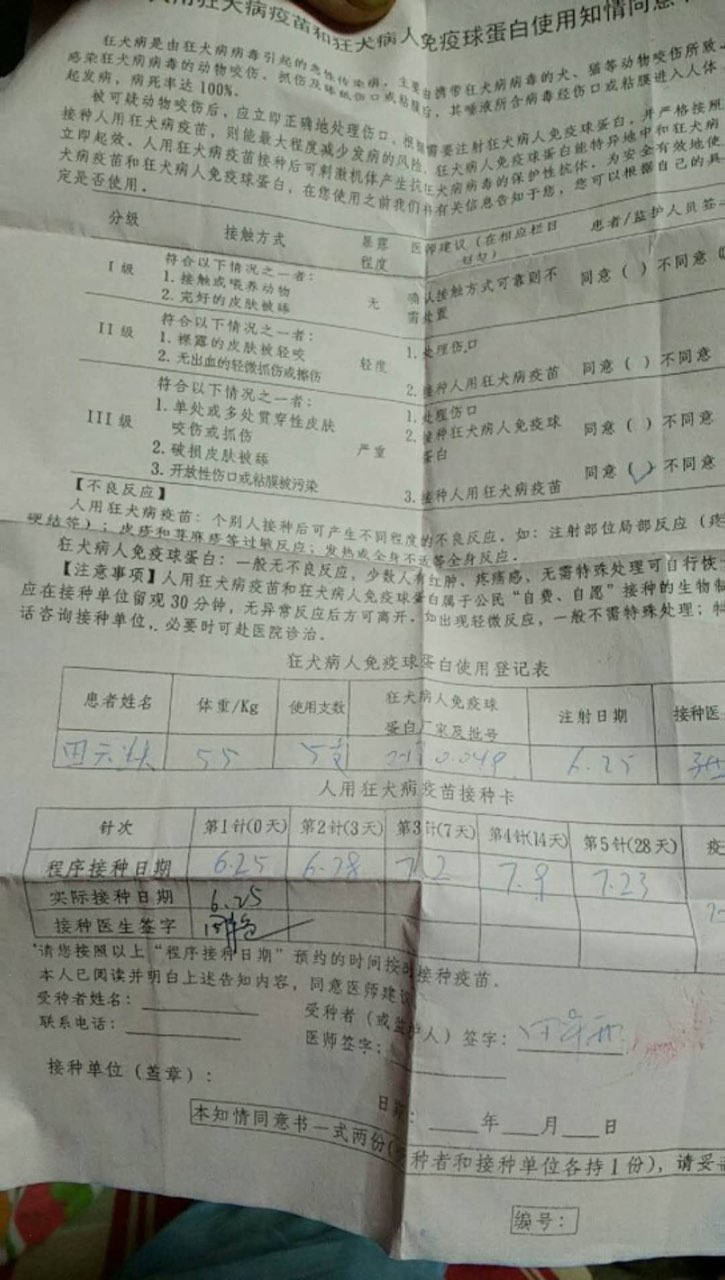 人用狂犬病疫苗和狂犬病人免疫球蛋白使用知情同意
狂犬病是由狂犬病病毒引起的急性传染病，主要由携带狂犬病病毒的犬、猫等动物咬伤所致
感染狂犬病病毒的动物咬伤、抓伤及舔舐伤口或粘膜后，其唾液所含病毒经伤口或粘膜进入人体
起发病，病死率达 100%．
被可疑动物咬伤后，应立即正确地处理伤口，根据需要注射狂犬病人免疫球蛋白，并严格按照
接种人用狂犬病疫苗，则能最大程度减少发病的风险．狂犬病人免疫球蛋白能特异地中和狂犬病
立即起效．人用狂犬病疫苗接种后可刺激机体产生抗狂犬病病毒的保护性抗体．为安全有效地使
犬病疫苗和狂犬病人免疫球蛋白，在您使用之前我们将有关信息告知于您，您可以根据自己的具
定是否使用．
分级 接触方式 暴露程度 医师建议（在相应栏目 患者/监护人员签
I 级 符合以下情况之一者： 无 确认接触方式可靠则不 同意（ ）不同意（
1. 接触或喂养动物 需处置
2. 完好的皮肤被舔
II 级 符合以下情况之一者： 轻度 1. 处理伤口
1. 裸露的皮肤被轻咬
2. 无出血的轻微抓伤或擦伤 2. 接种人用狂犬病疫苗 同意（ ）不同意
III 级 符合以下情况之一者： 严重 1. 处理伤口
1. 单处或多处贯穿性皮肤 2. 接种狂犬病人免疫球 同意（ ）不同意
咬伤或抓伤 蛋白
2. 破损皮肤被舔
3. 开放性伤口或粘膜被污染 3. 接种人用狂犬病疫苗 同意（√）不同意
【不良反应】
人用狂犬病疫苗：个别人接种后可产生不同程度的不良反应．如：注射部位局部反应（疼
硬结等）；皮疹和荨麻疹等过敏反应；发热或全身不适等全身反应．
狂犬病人免疫球蛋白：一般无不良反应，少数人有红肿、疼痛感，无需特殊处理可自行恢
【注意事项】人用狂犬病疫苗和狂犬病人免疫球蛋白属于公民“自费、自愿”接种的生物制
应在接种单位留观 30 分钟，无异常反应后方可离开．如出现轻微反应，一般不需特殊处理；
话咨询接种单位，必要时可赴医院诊治．
狂犬病人免疫球蛋白使用登记表
患者姓名 体重/Kg 使用支数 狂犬病人免疫球蛋白厂家及批号 注射日期 接种医
55 5支 6.25
人用狂犬病疫苗接种卡
针次 第1针(0天) 第2针(3天) 第3针(7天) 第4针(14天) 第5针(28天) 疫
程序接种日期 6.25 6.28 7.2 7.9 7.23
实际接种日期 6.25
接种医生签字
*请您按照以上“程序接种日期”预约的时间按时接种疫苗．
本人已阅读并明白上述告知内容，同意医师建议
受种者姓名： 受种者（或监护人）签字：
联系电话： 医师签字：
接种单位（盖章）：
日期： 年 月 日
本知情同意书一式两份（受种者和接种单位各持1份），请妥
编号：